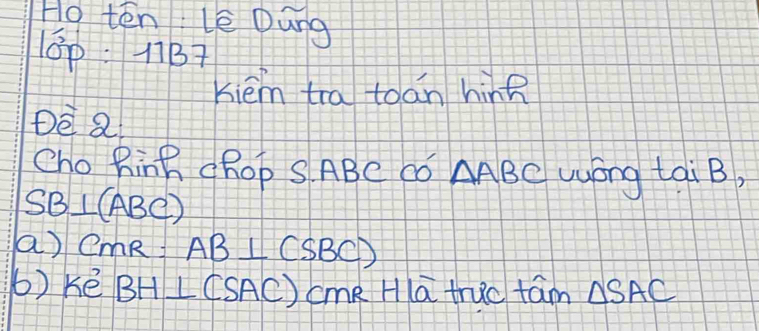 Họ tên : Lê Dũng
lớp : 11B7
Kiểm tra toán hình
Đề 2:
Cho hình chóp S.ABC có ΔABC vuông tại B,
SB⊥(ABC)
a) CmR : AB ⊥ (SBC)
b) Kẻ BH ⊥ (SAC) cmR H là trực tâm ΔSAC